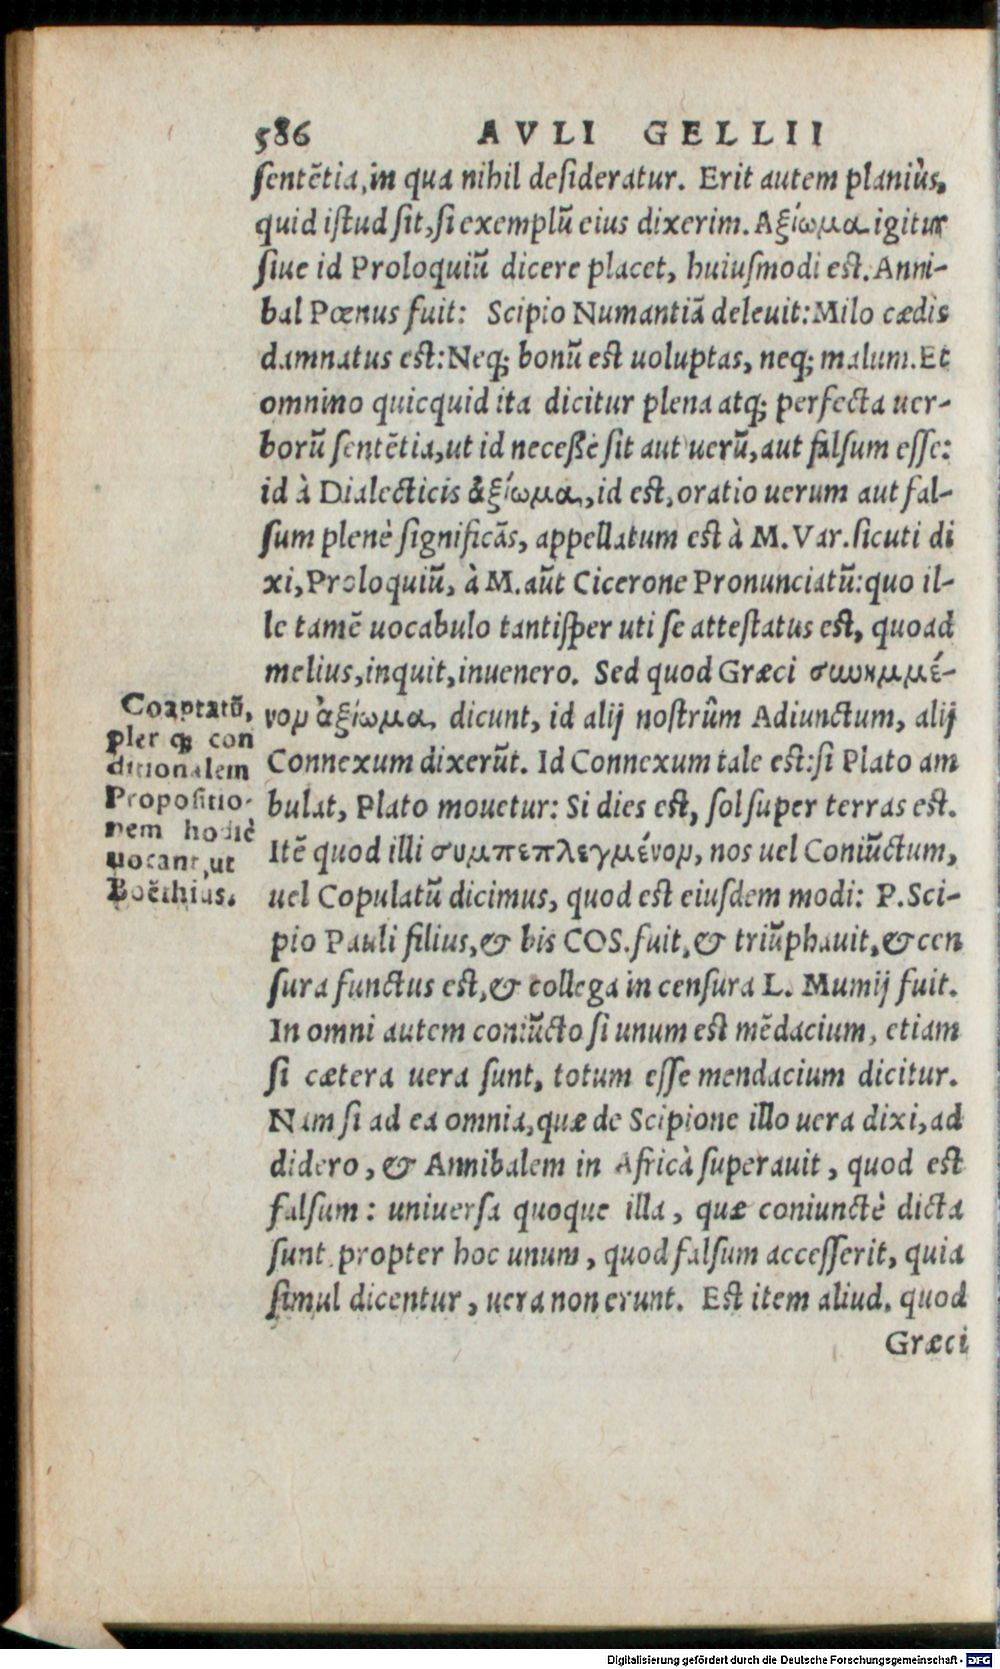 586 AVLI GELLII
sentẽtia, in qua nihil desideratur. Erit autem planiùs,
quid istud sit, si exemplũ eius dixerim. Αξίωμα igitur
siue id Proloquiũ dicere placet, huiusmodi est. Anni-
bal Pœnus fuit: Scipio Numantiã deleuit: Milo cædis
damnatus est: Neq; bonũ est uoluptas, neq; malum. Et
omnino quicquid ita dicitur plena atq; perfecta uer-
borũ sentẽtia, ut id necesse sit aut uerũ, aut falsum esse:
id à Dialecticis ἀξίωμα, id est, oratio uerum aut fal-
sum plenè significãs, appellatum est à M. Var. sicuti di
xi, Proloquiũ, à M. aũt Cicerone Pronunciatũ: quo il-
le tamẽ uocabulo tantisper uti se attestatus est, quoad
melius, inquit, inuenero. Sed quod Græci συνημμέ-
νον ἀξίωμα, dicunt, id alij nostrûm Adiunctum, alij
Connexum dixerũt. Id Connexum tale est: si Plato am
bulat, Plato mouetur: Si dies est, sol super terras est.
Itẽ quod illi συμπεπλεγμένον, nos uel Coniũctum,
uel Copulatũ dicimus, quod est eiusdem modi: P. Sci-
pio Pauli filius, & bis COS. fuit, & triũphauit, & cen
sura functus est, & collega in censura L. Mumij fuit.
In omni autem coniũcto si unum est mẽdacium, etiam
si cætera uera sunt, totum esse mendacium dicitur.
Nam si ad ea omnia, quæ de Scipione illo uera dixi, ad
didero, & Annibalem in Africà superauit, quod est
falsum: uniuersa quoque illa, quæ coniunctè dicta
sunt, propter hoc unum, quod falsum accesserit, quia
simul dicentur, uera non erunt. Est item aliud, quod
Græci
Coaptatũ,
pler q; con
ditionalem
Propositio-
nem hodiè
uocant, ut
Boëthius.
Digitalisierung gefördert durch die Deutsche Forschungsgemeinschaft - DFG